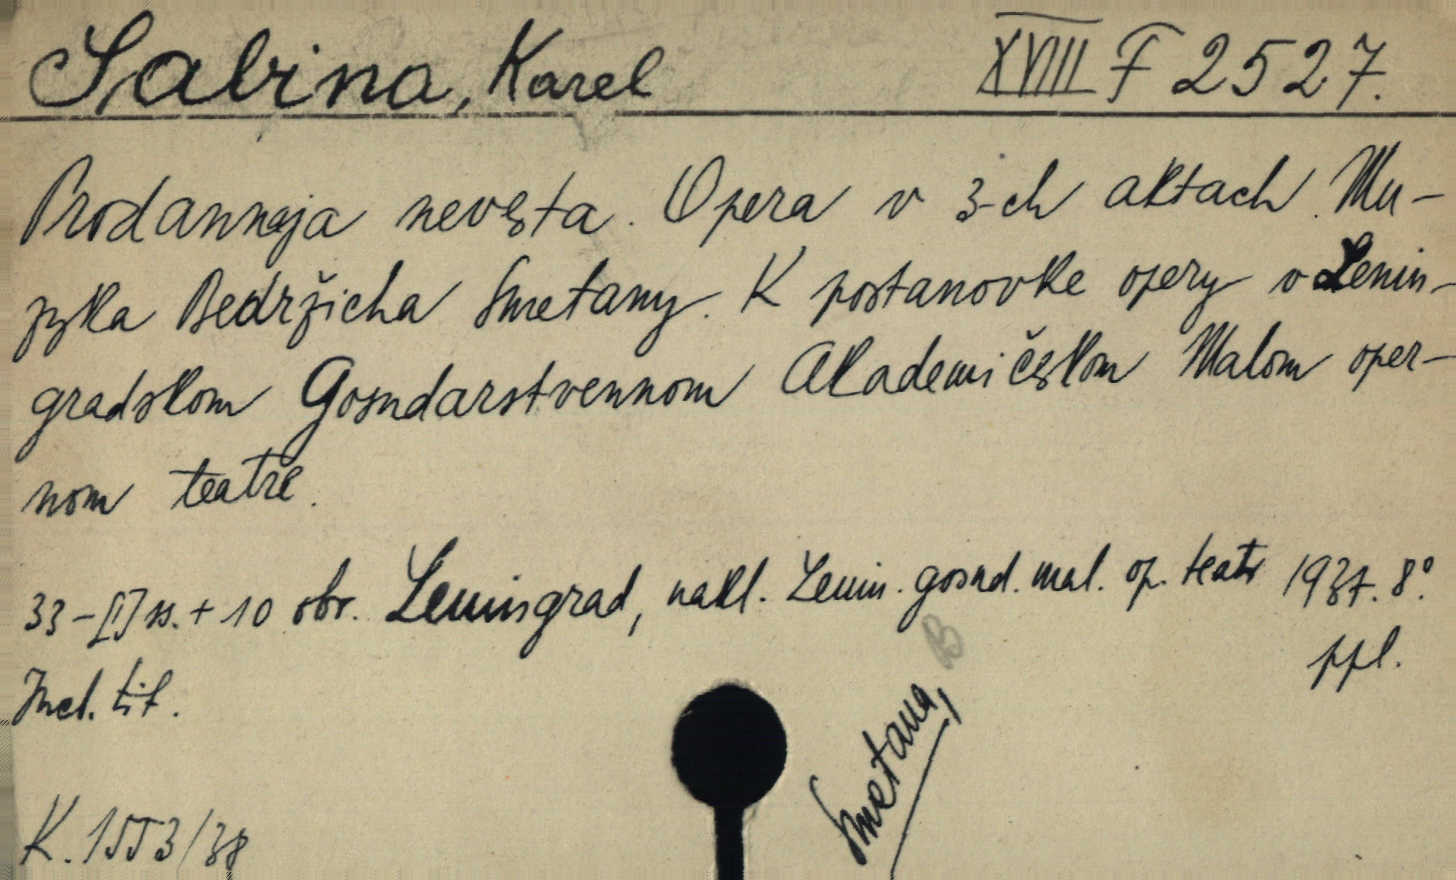 Sabina, Karel XVIII F 2527.
Prodannaja nevesta. Opera v 3-ch aktach. Mu-
zyka Bedržicha Smetany. K postanovke opery v Lenin-
gradskom Gosudarstvennom Akademičeskom Malom oper-
nom teatre.
33-[1] ss. + 10 obr. Leningrad, nakl. Lenin. gosud. mal. op. teatr 1937. 8°.
ppl.
Incl. tit.
Smetana, B
K. 1553/38